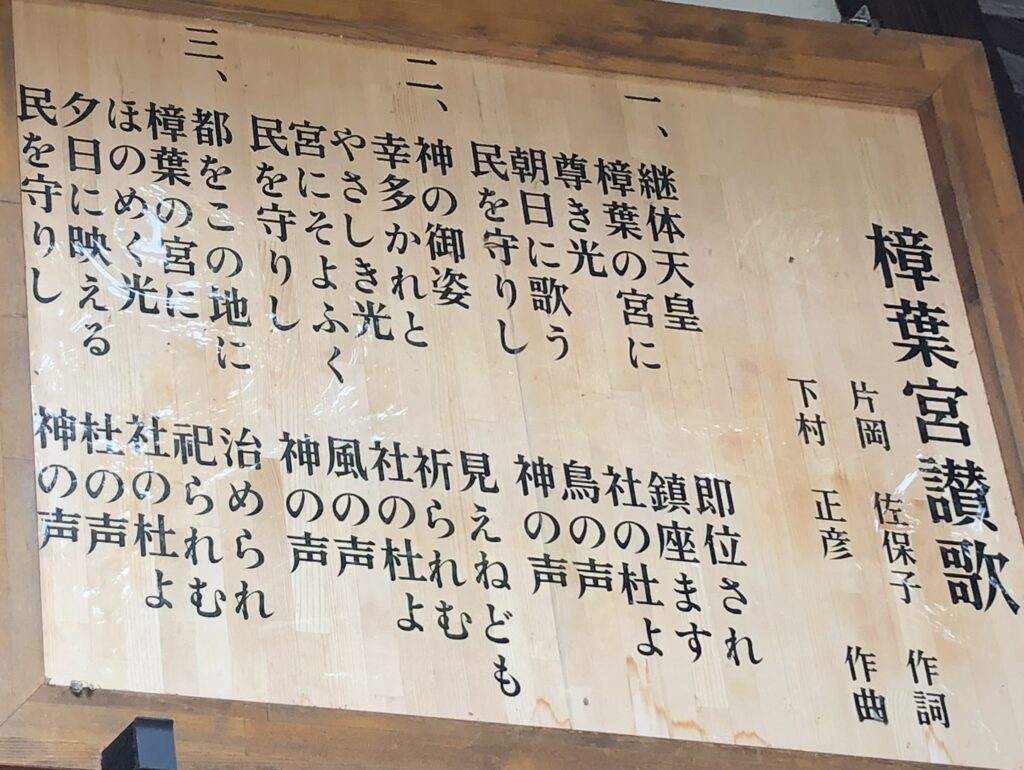 樟葉宮讃歌
片岡 佐保子 作詞
下村 正彦 作曲
一、
継体天皇 即位され
樟葉の宮に 鎮座ます
尊き光 社の杜よ
朝日に歌う 鳥の声
民を守りし 神の声
二、
神の御姿 見えねども
幸多かれと 祈られむ
やさしき光 社の杜よ
宮にそよふく 風の声
民を守りし 神の声
三、
都をこの地に 治められ
樟葉の宮に 祀られむ
ほのめく光 社の杜よ
夕日に映える 杜の声
民を守りし 神の声